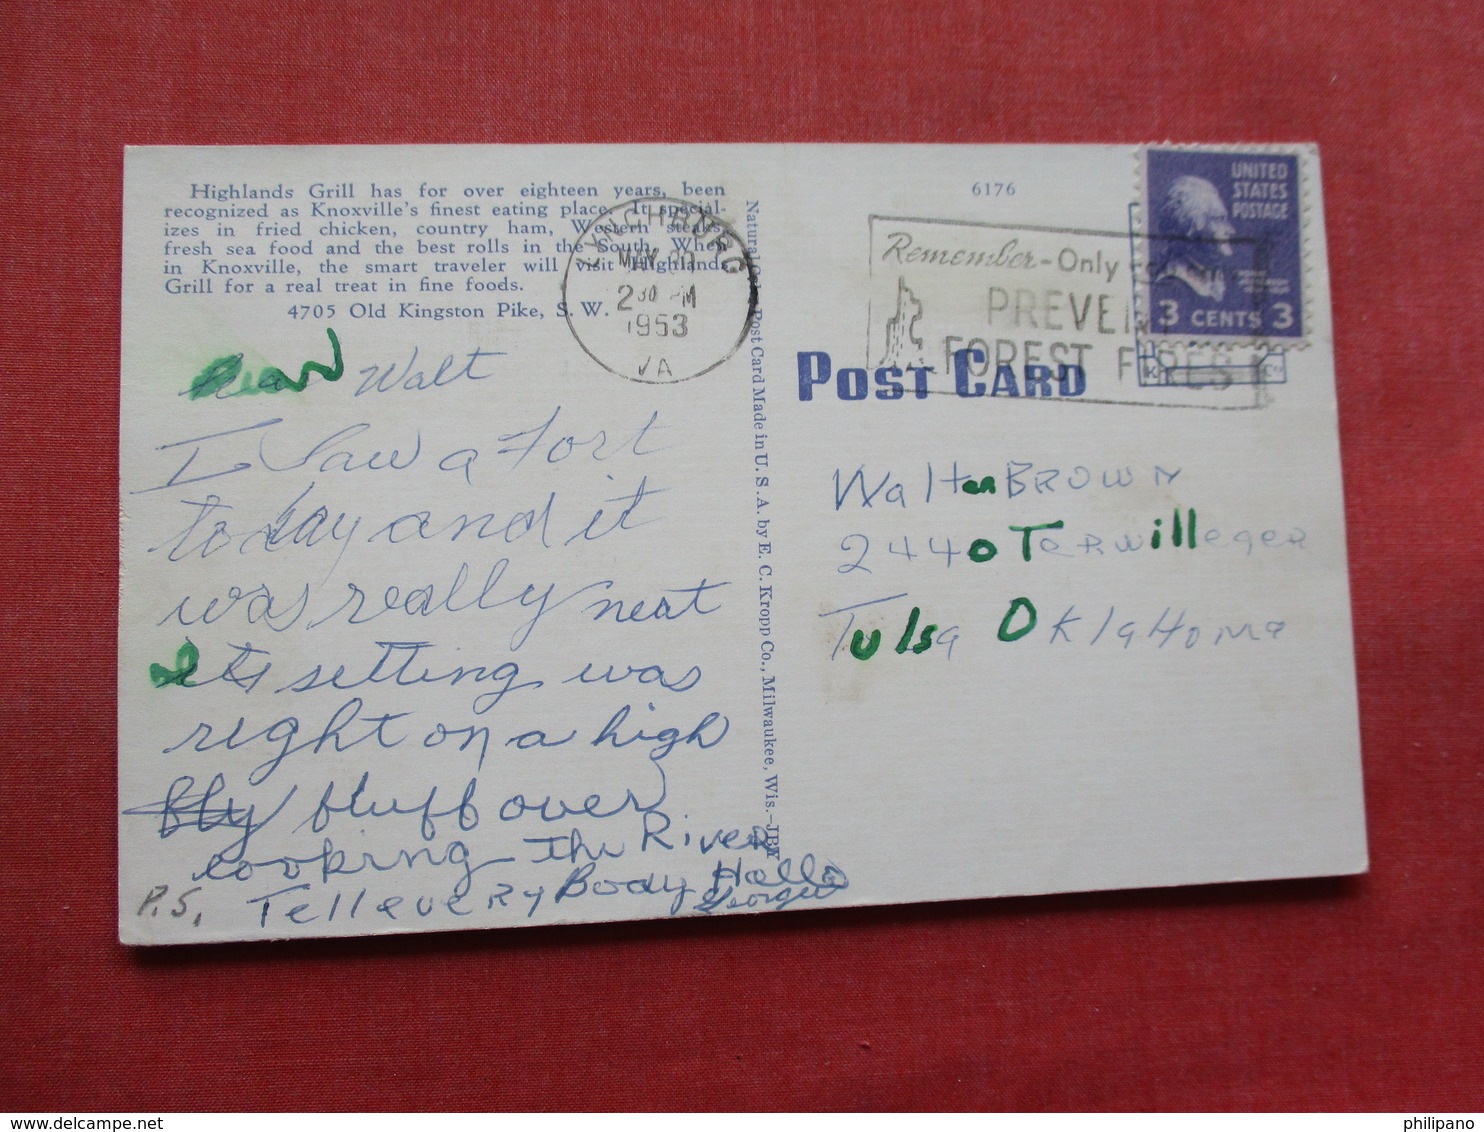 Highlands Grill has for over eighteen years, been
recognized as Knoxville's finest eating place. It special-
izes in fried chicken, country ham, Western steaks,
fresh sea food and the best rolls in the South. When
in Knoxville, the smart traveler will visit Highlands
Grill for a real treat in fine foods.
4705 Old Kingston Pike, S. W.
LYNCHBURG
MAY
2 30 PM
1953
VA
Dear Walt
I saw a Fort
today and it
was really neat
its setting was
right on a high
fly bluff over
looking the River
P.S. Tell every Body Hello
George
Natural Color Post Card Made in U. S. A. by E. C. Kropp Co., Milwaukee, Wis.-JBX
6176
Remember-Only you can
PREVENT
FOREST FIRES
UNITED
STATES
POSTAGE
3 CENTS 3
POST CARD
Walter BROWN
2440 Terwilleger
Tulsa OklaHoma
philipano